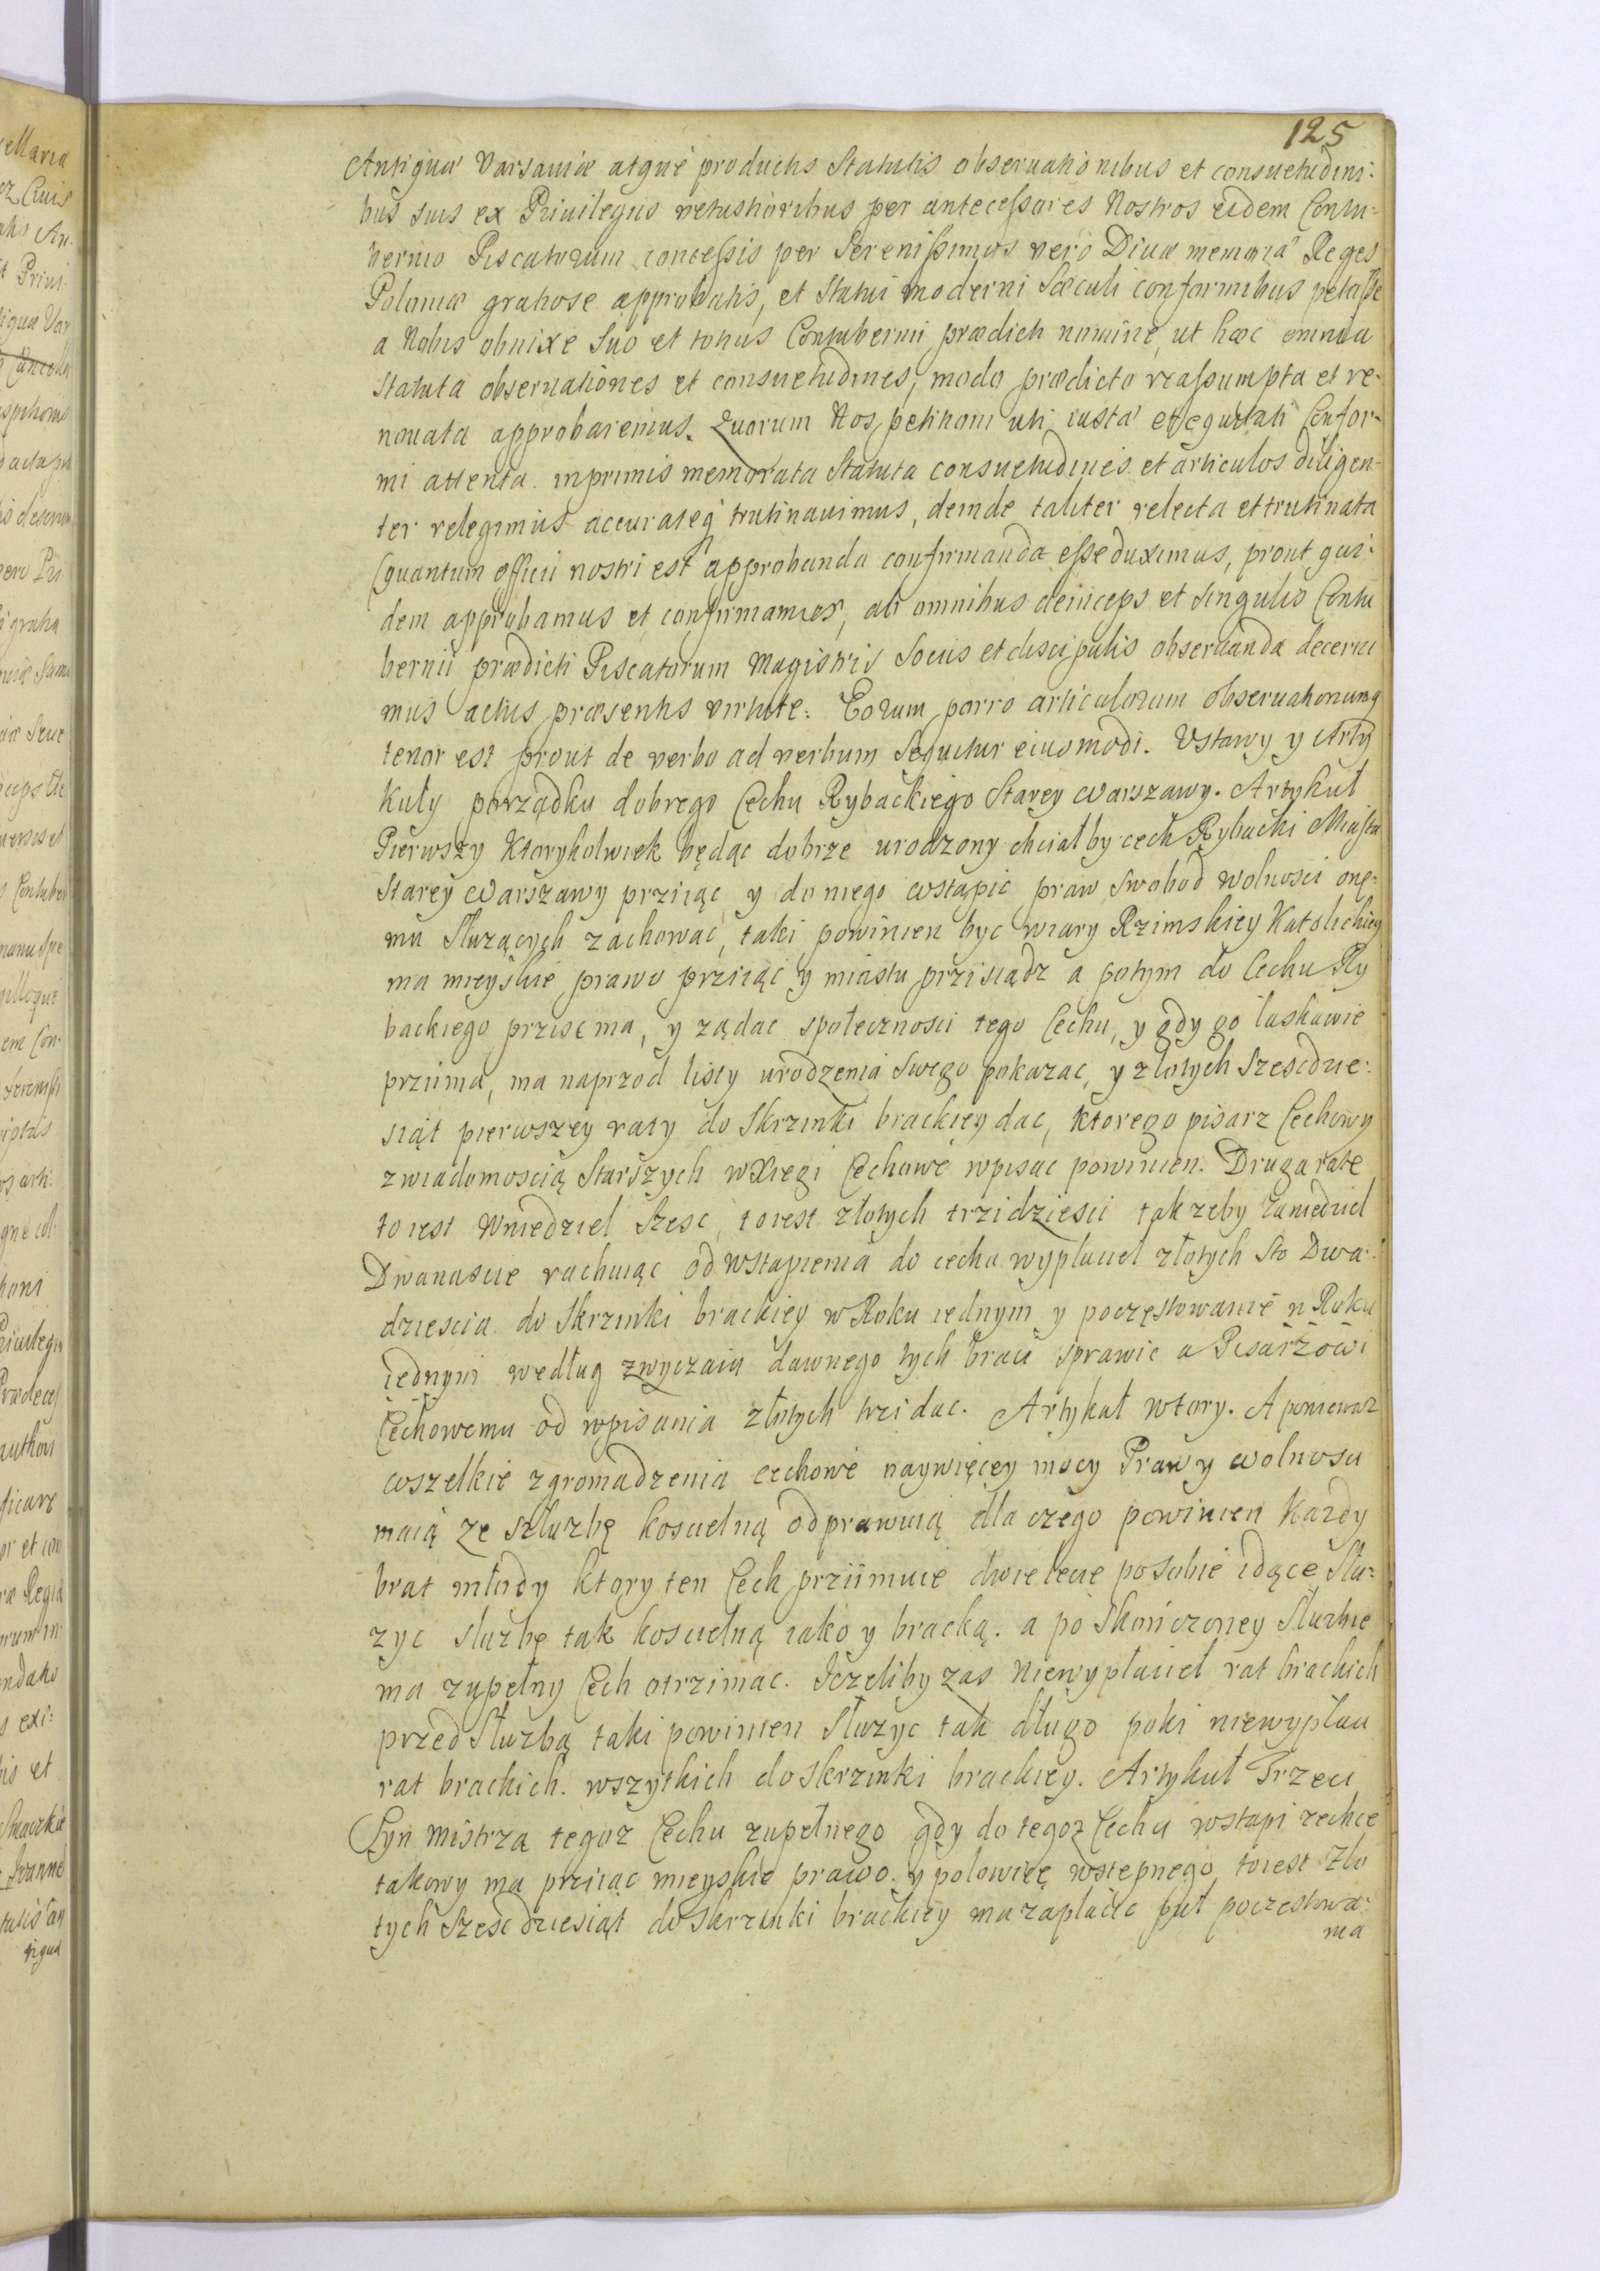 125
Antiquæ Varsaviæ atque productis Statutis observationibus et consuetudini:
bus suis ex Privilegiis vetustioribus per antecessores Nostros eidem Contu:
bernio Piscatorum concessis per Serenissimos vero Divæ memoriæ Reges
Poloniæ gratiose approbatis, et Statui moderni Sæculi conformibus petiisse
a Nobis obnixe Suo et totius Contubernii prædicti nomine, ut hæc omnia
Statuta observationes et consuetudines, modo prædicto reassumpta et re-
novata approbaremus. Quorum Nos petitioni uti iustæ et equitati Confor-
mi attenta inprimis memorata Statuta consuetudines et articulos diligen-
ter relegimus accurateq trutinavimus, deinde taliter relecta et trutinata
(quantum officii nostri est approbanda confirmanda esse duximus, prout qui-
dem approbamus et confirmamus, ab omnibus deinceps et singulis Contu
bernii prædicti Piscatorum Magistris Sociis et discipulis observanda decerni
mus actus præsentis virtute: Eorum porro articulorum observationumq
tenor est prout de verbo ad verbum Sequitur eiusmodi. Ustawy y Arty
kuły porządku dobrego Cechu Rybackiego Starey Warszawy. Artykuł
Pierwszy Ktorykolwiek będąc dobrze urodzony chciałby cech Rybacki Miasta
Starey Warszawy przyiąc y do niego wstąpic praw Swobod wolnosci one:
mu Służących zachowac, taki powinien byc wiary Rzimskiey Katolickiey
ma mieyskie prawo przyiąc y miastu przisiądz a potym do Cechu Ry
backiego przisc ma, y ządac społecznosci tego Cechu, y gdy go łaskawie
przimą, ma naprzod listy urodzenia Swego pokazac, y złotych Szescdzie:
siąt pierwszey raty do Skrzinki brackiey dac, ktorego pisarz Cechowy
z wiadomoscią Starszych w Xięgi Cechowe wpisac powinien. Drugą ratę
to iest w niedziel Szesc, to iest złotych trzidziesci tak zeby za niedziel
Dwanascie rachuiąc od wstąpienia do cechu wypłacieł złotych Sto Dwa:
dziescia do Skrzinki brackiey w Roku iednym y poczęstowanie w Roku
iednym według zwyczaiu dawnego tych braci sprawic a Pisarzowi
Cechowemu od wpisania złotych trzi dac. Artykuł wtory. A poniewaz
wszelkie zgromadzenia cechowe naywięcey mocy Praw y wolnosci
maią ze szłuzbę koscielną odprawuią dla czego powinien Kazdy
brat młody ktory ten Cech przijmuie dwie lecie po sobie idące Słu:
zyc słuzbę tak koscielną iako y bracką. a po Skończoney Słuzbie
ma zupełny Cech otrzimac. Jezeliby zas niewypłacieł rat brackich
przed Słuzbą taki powinien Słuzyc tak długo poki niewypłaci
rat brackich. wszytkich do skrzinki brackiey. Artykuł Trzeci
Syn mistrza tegoz Cechu zupełnego gdy do tegoz Cechu wstąpi zechce
takowy ma przyiąc mieyskie prawo y połowicę wstępnego to iest Zło
tych Szescdziesiąt do skrzinki brackiey ma zapłacic puł poczęstowa:
nia